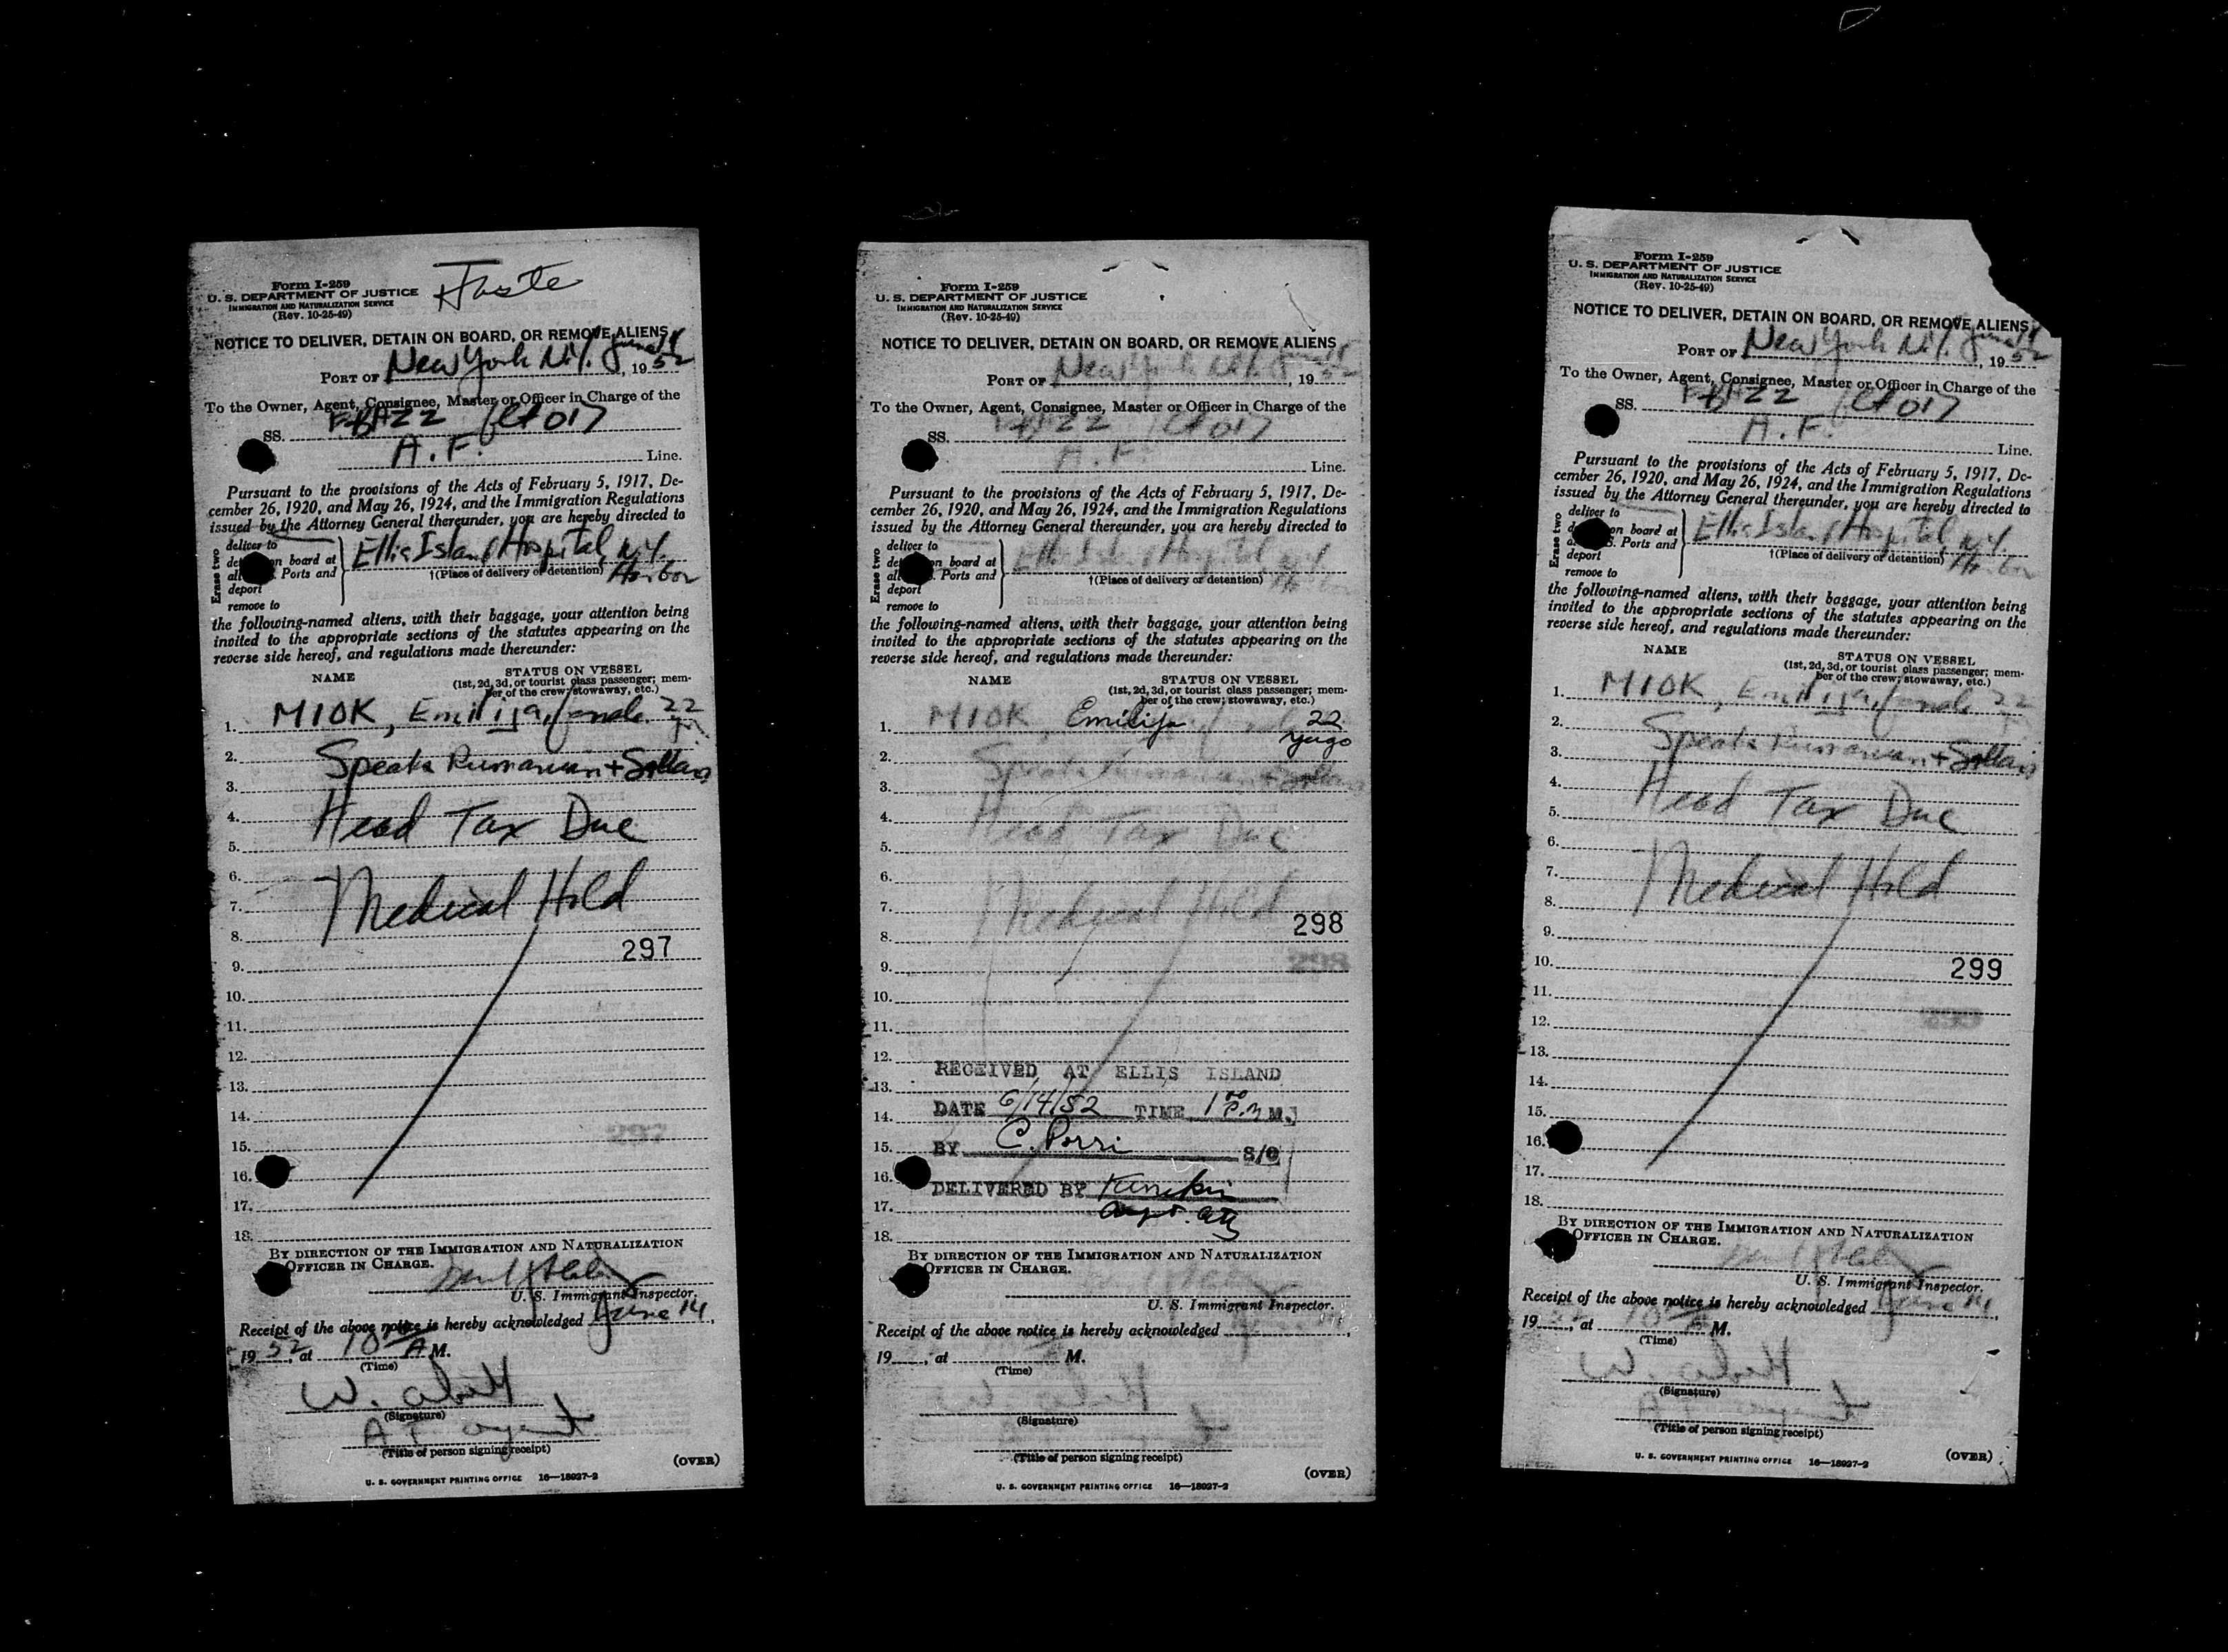 Form I-259
U. S. DEPARTMENT OF JUSTICE
IMMIGRATION AND NATURALIZATION SERVICE
(Rev. 10-25-49)
NOTICE TO DELIVER, DETAIN ON BOARD, OR REMOVE ALIENS
PORT OF New York N.Y. June 14, 1952
To the Owner, Agent, Consignee, Master or Officer in Charge of the
SS.
A.F. Line.
Pursuant to the provisions of the Acts of February 5, 1917, De-
cember 26, 1920, and May 26, 1924, and the Immigration Regulations
issued by the Attorney General thereunder, you are hereby directed to
Erase two
deliver to
on board at
Ports and
deport
remove to
Ellis Island Hospital, N.Y.
Harbor
†(Place of delivery or detention)
the following-named aliens, with their baggage, your attention being
invited to the appropriate sections of the statutes appearing on the
reverse side hereof, and regulations made thereunder:
NAME STATUS ON VESSEL
(1st, 2d, 3d, or tourist class passenger; mem-
ber of the crew; stowaway, etc.)
1. MIOK, Emilija, female 22
2.
Speaks Rumanian +
3.
4. Head Tax Due
5.
6.
7. Medical Hold
8.
297
9.
10.
11.
12.
13.
14.
15.
16.
17.
18.
BY DIRECTION OF THE IMMIGRATION AND NATURALIZATION
OFFICER IN CHARGE.
U. S. Immigrant Inspector.
Receipt of the above notice is hereby acknowledged June 14,
1952, at 10 A M.
(Time)
W.
(Signature)
AF agent
(Title of person signing receipt)
(OVER)
U. S. GOVERNMENT PRINTING OFFICE 16—18927-2
Form I-259
U. S. DEPARTMENT OF JUSTICE
IMMIGRATION AND NATURALIZATION SERVICE
(Rev. 10-25-49)
NOTICE TO DELIVER, DETAIN ON BOARD, OR REMOVE ALIENS
PORT OF New York N.Y. June 14, 1952
To the Owner, Agent, Consignee, Master or Officer in Charge of the
SS.
A.F. Line.
Pursuant to the provisions of the Acts of February 5, 1917, De-
cember 26, 1920, and May 26, 1924, and the Immigration Regulations
issued by the Attorney General thereunder, you are hereby directed to
Erase two
deliver to
on board at
Ports and
deport
remove to
Ellis Island Hospital, N.Y.
†(Place of delivery or detention)
the following-named aliens, with their baggage, your attention being
invited to the appropriate sections of the statutes appearing on the
reverse side hereof, and regulations made thereunder:
NAME STATUS ON VESSEL
(1st, 2d, 3d, or tourist class passenger; mem-
ber of the crew; stowaway, etc.)
1. MIOK, Emilija 22
yugo
2.
Speaks Rumanian +
3.
4. Head Tax Due
5.
6.
7. Medical Hold 298
8.
9. 298
10.
11.
12.
RECEIVED AT ELLIS ISLAND
13.
14. DATE 6/14/52 TIME 1 00 P.M M.
15. BY C. Porri S/O
16.
DELIVERED BY
17.
18.
BY DIRECTION OF THE IMMIGRATION AND NATURALIZATION
OFFICER IN CHARGE.
U. S. Immigrant Inspector.
Receipt of the above notice is hereby acknowledged
19 , at M.
(Time)
(Signature)
(Title of person signing receipt)
(OVER)
U. S. GOVERNMENT PRINTING OFFICE 16—18927-2
Form I-259
U. S. DEPARTMENT OF JUSTICE
IMMIGRATION AND NATURALIZATION SERVICE
(Rev. 10-25-49)
NOTICE TO DELIVER, DETAIN ON BOARD, OR REMOVE ALIENS
PORT OF New York N.Y. June 14, 1952
To the Owner, Agent, Consignee, Master or Officer in Charge of the
SS.
A.F. Line.
Pursuant to the provisions of the Acts of February 5, 1917, De-
cember 26, 1920, and May 26, 1924, and the Immigration Regulations
issued by the Attorney General thereunder, you are hereby directed to
Erase two
deliver to
on board at
S. Ports and
deport
remove to
Ellis Island Hospital, N.Y.
Harbor
†(Place of delivery or detention)
the following-named aliens, with their baggage, your attention being
invited to the appropriate sections of the statutes appearing on the
reverse side hereof, and regulations made thereunder:
NAME STATUS ON VESSEL
(1st, 2d, 3d, or tourist class passenger; mem-
ber of the crew; stowaway, etc.)
1. MIOK, Emilija, female 22
2.
Speaks Rumanian +
3.
4. Head Tax Due
5.
6.
7. Medical Hold
8.
9.
10. 299
11.
12. 299
13.
14.
15.
16.
17.
18.
BY DIRECTION OF THE IMMIGRATION AND NATURALIZATION
OFFICER IN CHARGE.
U. S. Immigrant Inspector.
Receipt of the above notice is hereby acknowledged June 14,
1952, at 10 A M.
(Time)
W.
(Signature)
A agent
(Title of person signing receipt)
(OVER)
U. S. GOVERNMENT PRINTING OFFICE 16—18927-2